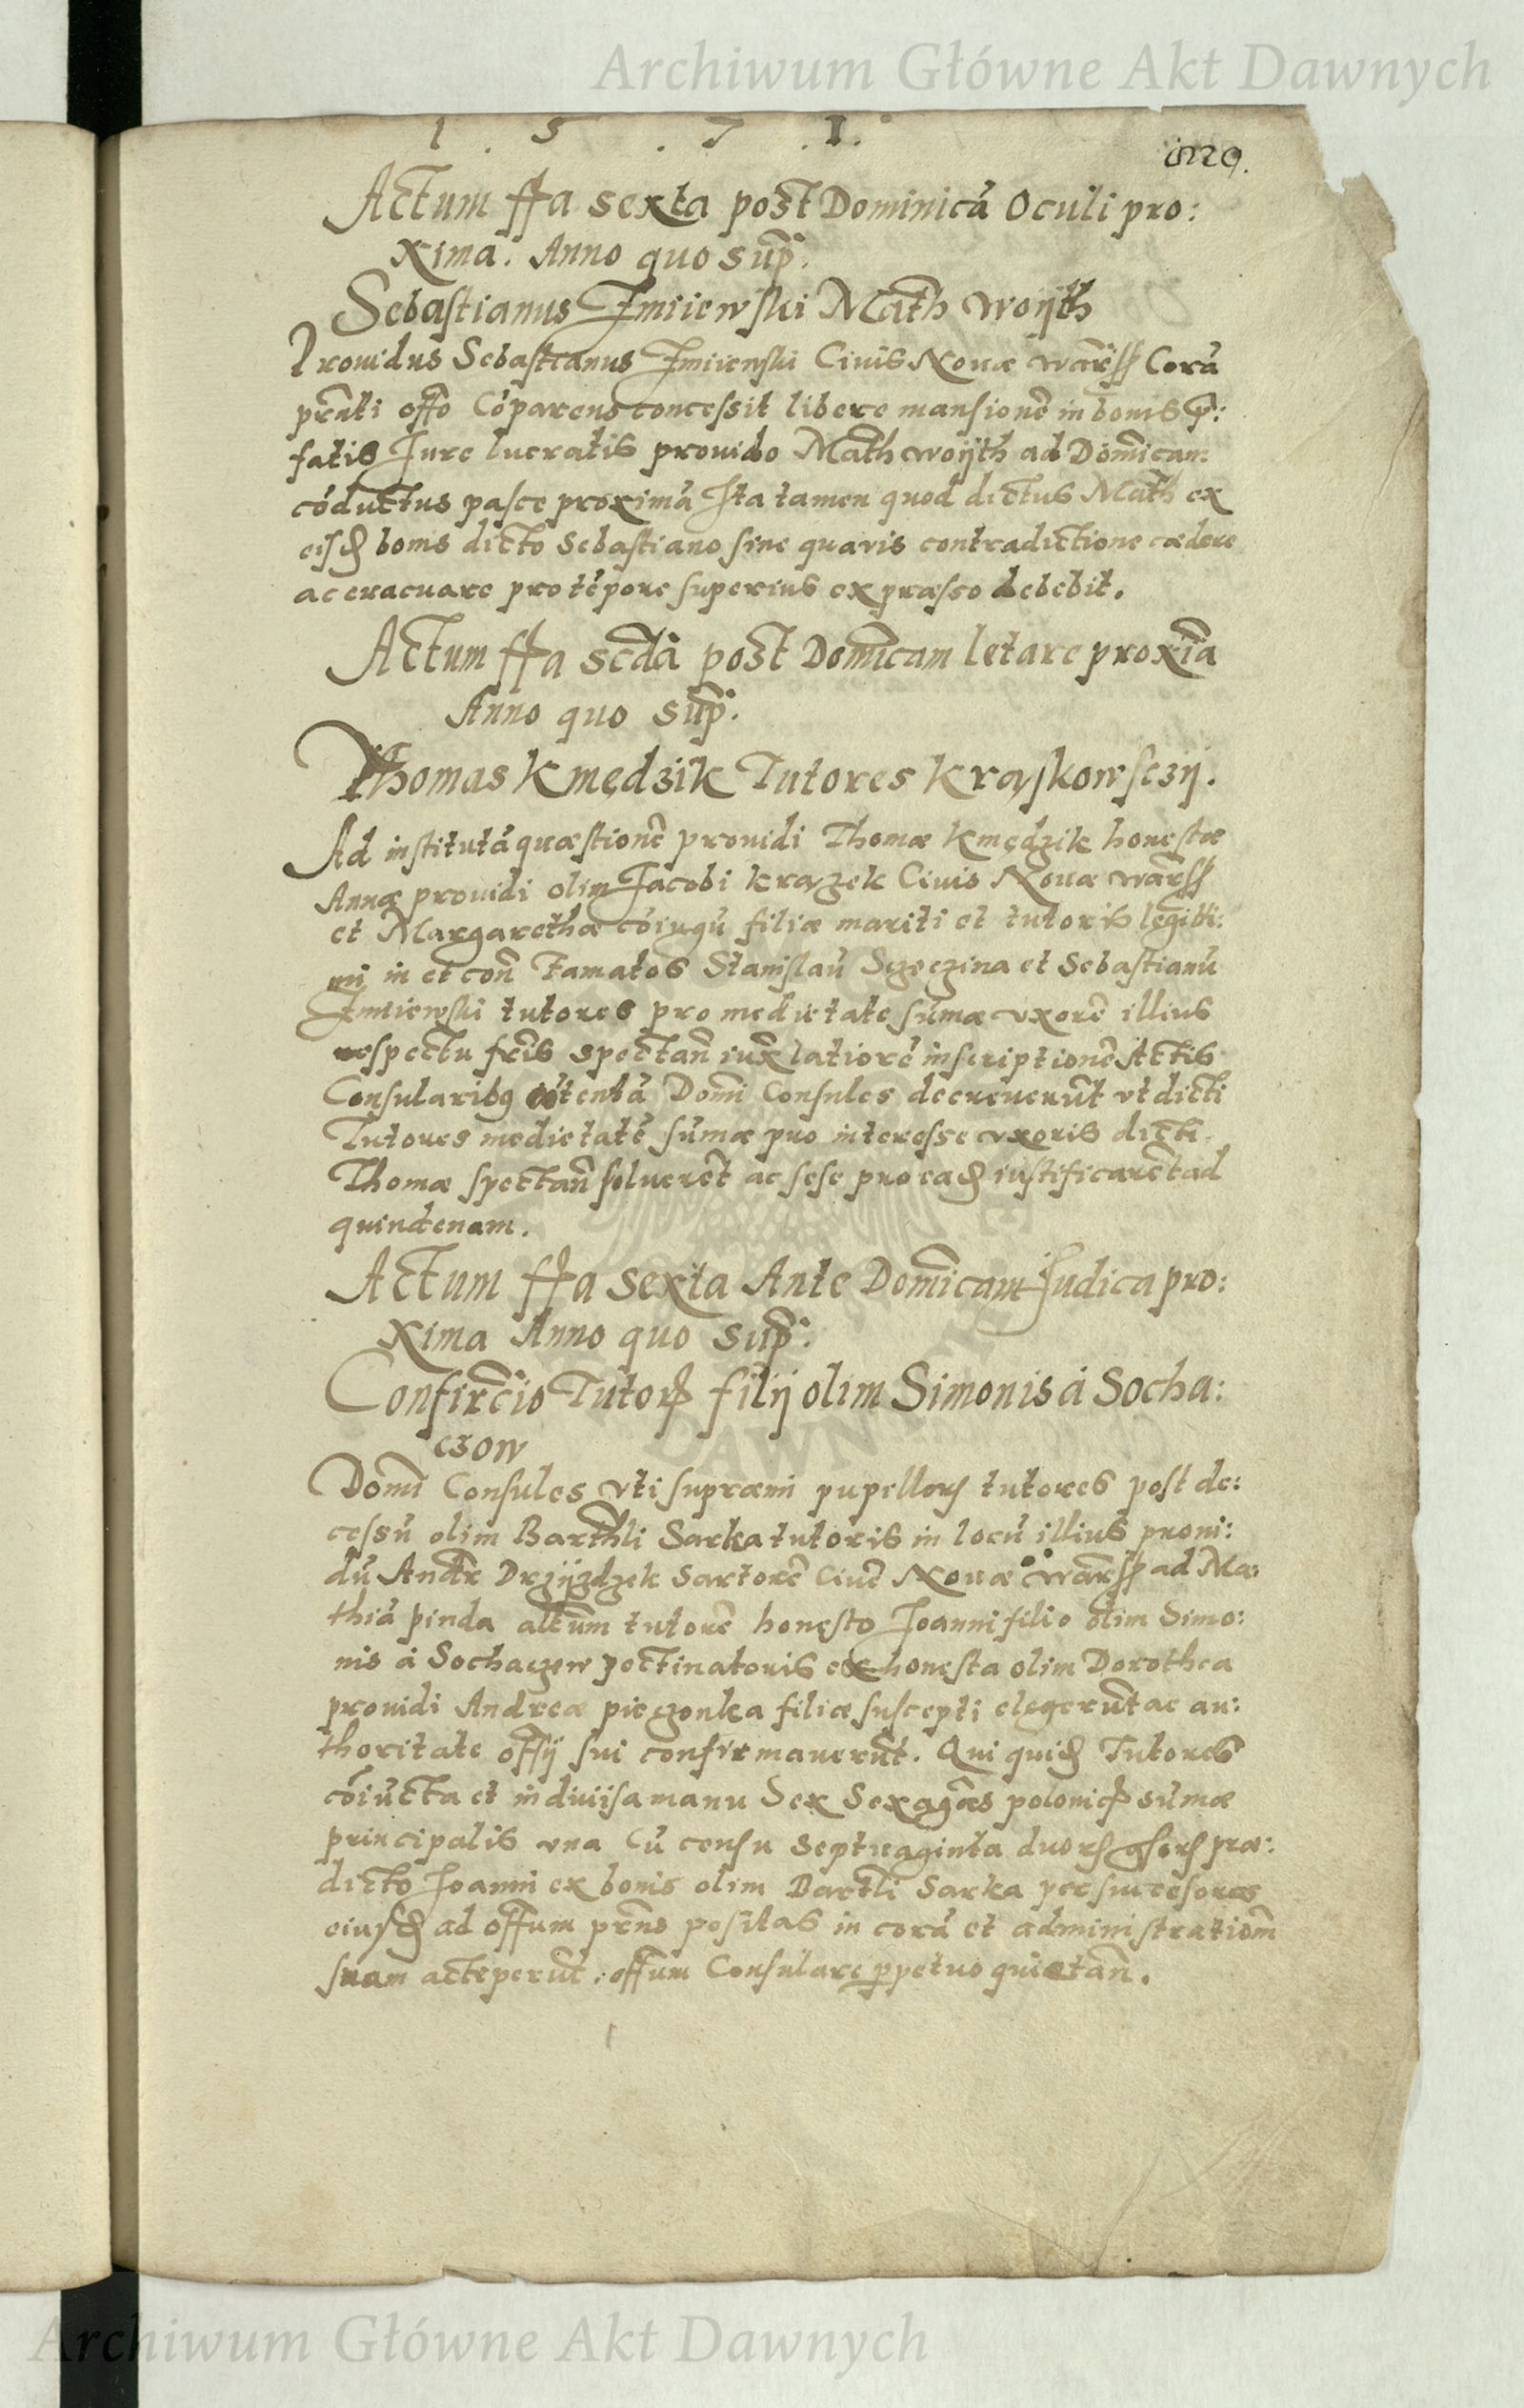 Archiwum Główne Akt Dawnych
1 . 5 . 7 . 1.
Actum ffa sexta post Dominicā Oculi pro:
xima. Anno quo sup:
Sebastianus Zmiiewski Math Woÿth
Prouidus Sebastianus Zmiiewski Ciuis Nouæ Warss Corā
prnti offo Cōparens concessit libere mansionē in bonis p:
fatis Jure lucratis prouido Math woÿth ad Domīcam
cōductus pasce proximā Ita tamen quod dictus Math ex
eisd bonis dicto Sebastiano sine quauis contradictione cædere
ac euacuare pro tēpore superius expræsso debebit.
Actum ffa scdā post Domīcam letare proxīa
Anno quo sup:
Thomas Kmędzik Tutores Krąskowsczij.
Ad institutā quæstionē prouidi Thomæ Kmędzik honestæ
Annæ prouidi olim Jacobi Krązek Ciuis Nouæ Warss
et Margarethæ cōiugū filiæ mariti et tutoris legitti:
mi in et con Famatos Stanislaū Sczeczina et Sebastianū
Zmiiewski tutores pro medietate sūmæ vxorē illius
respectu fris spectan iux latiorē inscriptionē Actis
Consularibq cōtentā Domī Consules decreuerūt vt dicti
Tutores medietatē sūmæ pro interesse vxoris dicti
Thomæ spectan soluerēt ac sese pro ead iustificarēt ad
quindenam.
Actum ffa sexta Ante Domīcam Judica pro:
xima Anno quo sup:
Confircio Tutor filij olim Simonis á Socha:
czow
Domī Consules vti supræmi pupillor tutores post de:
cessū olim Barthli Sarka tutoris in locū illius proui:
dū Andr Drzÿzdzek Sartorē Ciuē Nouæ Warss ad Ma:
thiā pinda altūm tutorē honesto Joanni filio olim Simo:
nis á Sochaczew pectinatoris ex honesta olim Dorothea
prouidi Andreæ pieczonka filiæ suscepti elegerūt ac au:
thoritate offij sui confirmauerūt. Qui quid Tutores
cōiūcta et indiuisa manu Sex Sexagēas polonic sūmæ
principalis vna Cū censu septuaginta duor gsor præ:
dicto Joanni ex bonis olim Bartli Sarka per succesores
eiusd ad offum prns positas in corā et administratiōm
suam acceperūt offum Consulare ppetuo quietan.
Archiwum Główne Akt Dawnych